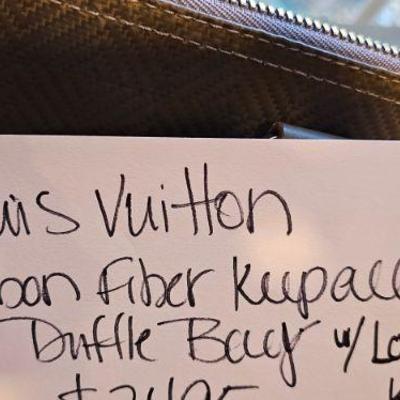 uis Vuitton
bon Fiber Kupall
Duffle Bag w/ Lo
$2495